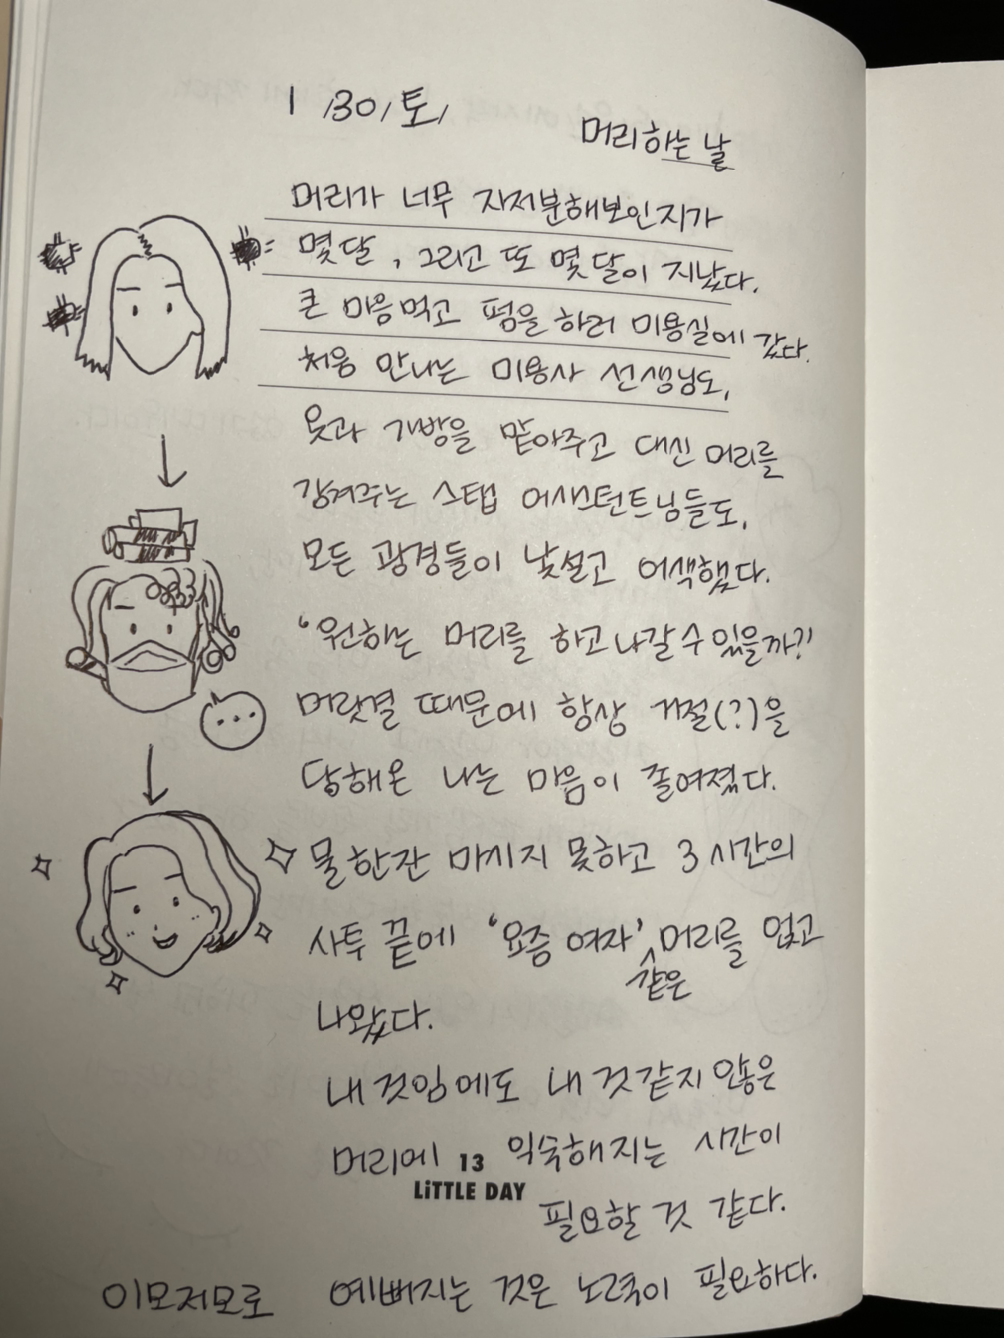 1/30/토/
머리하는 날
머리가 너무 자저분해보인지가
몇달, 그리고 또 몇 달이 지났다.
큰 마음먹고 펌을 하러 미용실에 갔다.
처음 만나는 미용사 선생님도,
옷과 가방을 맡아주고 대신 머리를
감겨주는 스탭 어시스턴트님들도,
모든 광경들이 낯설고 어색했다.
'원하는 머리를 하고 나갈 수 있을까?!
머릿결 때문에 항상 거절(?)을
당해온 나는 마음이 졸여졌다.
물 한잔 마시지 못하고 3시간의
사투 끝에 '요즘 여자' 같은 머리를 얹고
나왔다.
내 것임에도 내 것 같지 않은
머리에 익숙해지는 시간이
13
LiTTLE DAY
필요할 것 같다.
이모저모로 예뻐지는 것은 노력이 필요하다.